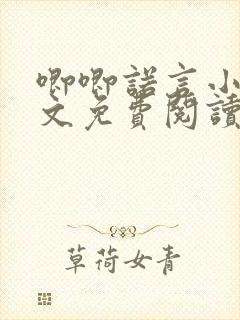 唧唧諾言小
文免費閱讀
草荷女青